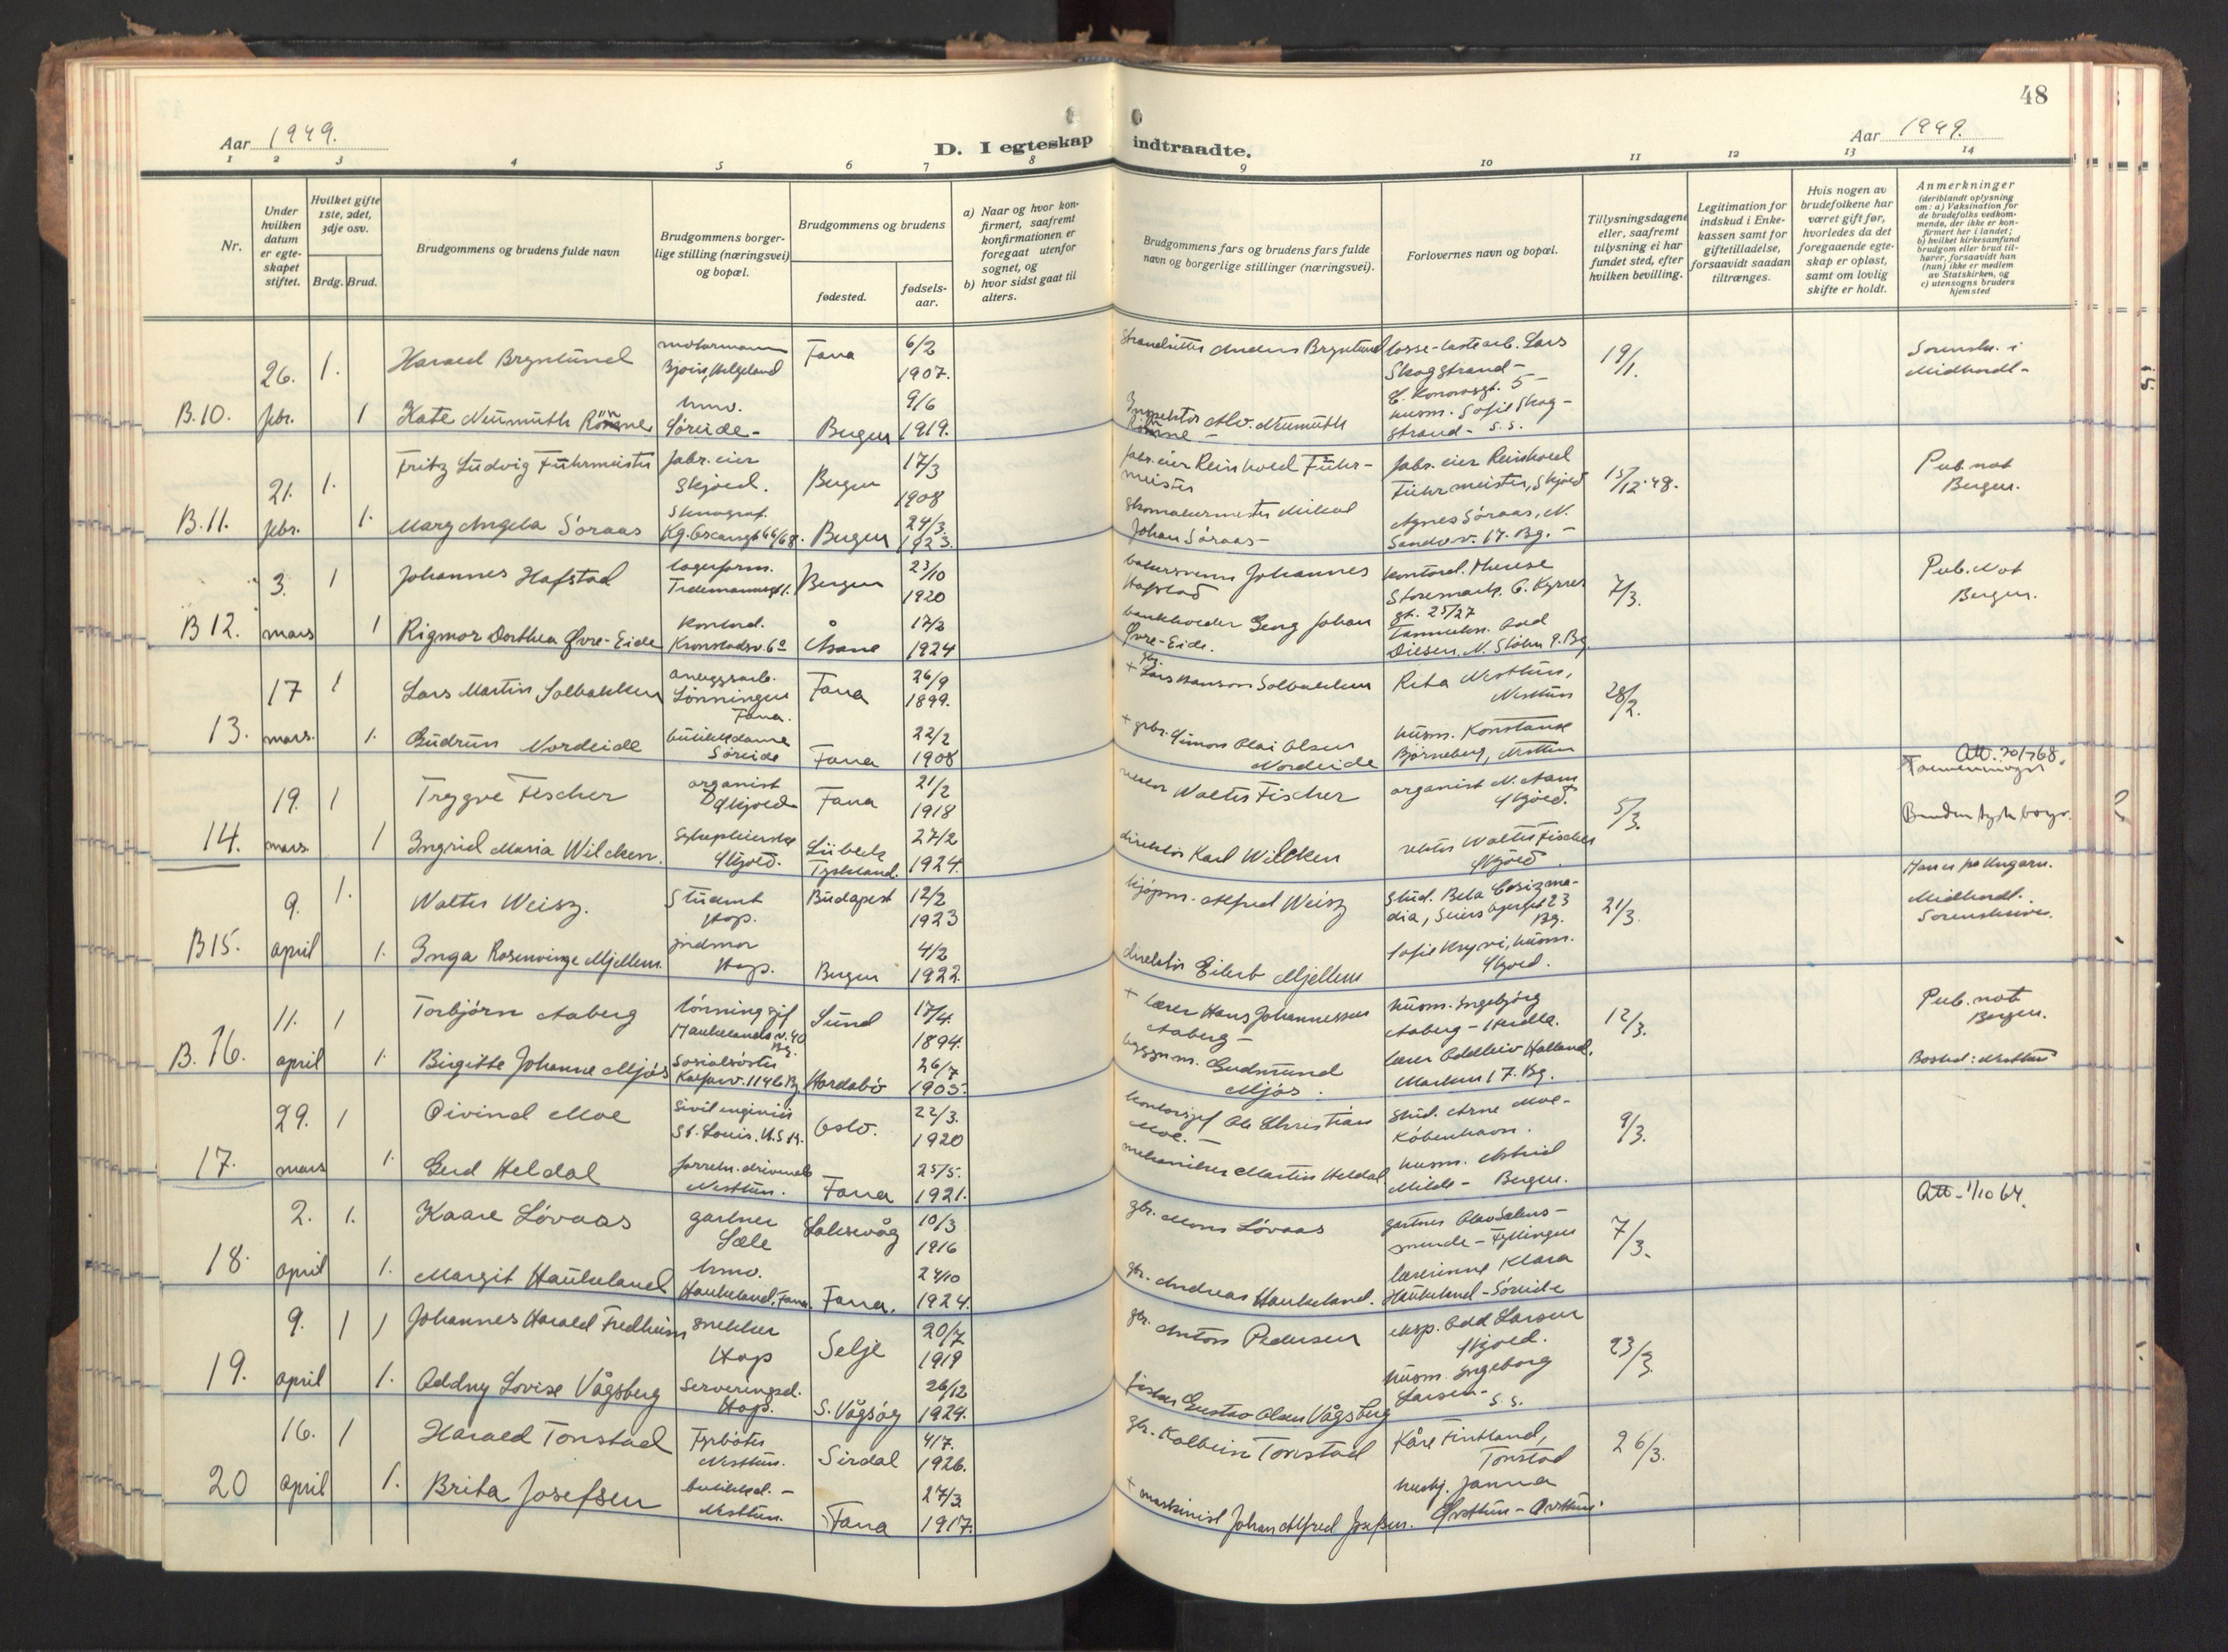 48
Aar 1949.
D. I egteskap indtraadte.
Aar 1949.
1 2 3 4 5 6 7 8 9 10 11 12 13 14
Nr.
Under hvilken datum er egteskapet stiftet.
Hvilket gifte 1ste, 2det, 3dje osv.
Brdg. Brud.
Brudgommens og brudens fulde navn
Brudgommens borgerlige stilling (næringsvei) og bopæl.
Brudgommens og brudens
fødested.
fødselsaar.
a) Naar og hvor konfirmert, saafremt konfirmationen er foregaat utenfor sognet, og
b) hvor sidst gaat til alters.
Brudgommens fars og brudens fars fulde navn og borgerlige stillinger (næringsvei).
Forlovernes navn og bopæl.
Tillysningsdagene eller, saafremt tillysning ei har fundet sted, efter hvilken bevilling.
Legitimation for indskud i Enkekassen samt for giftetilladelse, forsaavidt saadan tiltrænges.
Hvis nogen av brudefolkene har været gift før, hvorledes da det foregaaende egteskap er opløst, samt om lovlig skifte er holdt.
Anmerkninger (deriblandt oplysning om: a) Vaksination for de brudefolks vedkommende, der ikke er konfirmert her i landet; b) hvilket kirkesamfund brudgom eller brud tilhører, forsaavidt han (hun) ikke er medlem av Statskirken, og c) utensogns bruders hjemsted
26. 1. Harald Bryntund motormann Fana 6/2 1907. Anders Bryntund Lars Skogstrand - 19/1. Sorenskr. i Midhordl-
B.10. febr. 1 Kate Neumuth Rönne hmv. Søreide - Bergen 9/6 1919. Alv. Neumüth Rönne - husm. Sofie Skogstrand - s.s.
21. 1. Fritz Ludvig Führmeister fabr. eier Skjold. Bergen 17/3 1908 fabr. eier Reinhold Führmeister fabr. eier Reinhold Führmeister, Skjold 15/12-48. Pub. not Bergen.
B.11. febr. 1. Mary Angela Søraas Bergen 24/3 1923. skomakermester Mikal Johan Søraas - Agnes Søraas, N. Sandv. v. 17. Bg. -
3. 1 Johannes Hafstad lagerform. Bergen 23/10 1920 Johannes Hafstad kontord. Therese 7/3. Pub. Not Bergen.
B 12. mars 1 Rigmor Dorthea Øvre-Eide kontord. Kronstadsv. 6a Åsane 17/2 1924 Georg Johan Øvre-Eide.
17 1 Lars Martin Solbakken anleggsarb. Lønningen Fana. Fana 26/9 1899. + gbr. Lars Hansen Solbakken Rita Nesttun, Nesttun 28/2.
13. mars. 1. Gudrun Nordeide butikkdame Søreide Fana 22/2 1908 + grbr. Simon Olai Olsen Nordeide husm. Konstanse Bjørneberg, Nesttun
19. 1 Trygve Fischer organist Skjold Fana 21/2 1918 rektor Walter Fischer organist N. Aam Skjold. 5/3. Att. 30/7 68.
14. mars 1 Ingrid Maria Wilcken. Sykepleierske Skjold. Lübeck Tyskland. 27/2 1924. direktør Karl Wilcken rektor Walter Fischer Skjold. Bruden tysk borger.
9. 1. Walter Weisz. Student Hop. Budapest 12/2 1923 kjøpm. Alfred Weisz Stud. Bela 21/3. Midhordl. Sorenskriver.
B15. april 1. Inga Rosenvinge Mjellem. jordmor Hop. Bergen 4/2 1922. direktør Eilert Mjellem husm. Skjold.
11. 1 Torbjørn Aaberg Haukelandsv. 40 Bg. Sund 17/4. 1894. + lærer Hans Johannessen Aaberg - husm. Ingebjørg Aaberg - Herdla. 12/3. Pub. not Bergen.
B. 16. april 1. Birgitte Johanne Mjøs Sosialsøster Kalfarv. 114b Bg Hordabø 26/7 1905. byggm. Gudmund Mjøs. lærer Oddleiv Halland. Marken 17. Bg. Bosted: Nesttun
29. 1 Øivind Moe Sivilingeniør St. Louis, U.S.A. Oslo. 22/3. 1920 kontorsjef Ole Christian Moe. - Stud. Arne Moe - København. 9/3.
17. mars 1. Gerd Heldal forretn. drivende Nesttun. Fana 25/5. 1921. mekaniker Martin Heldal husm. Astrid Milde - Bergen.
2. 1. Kaare Løvaas gartner Sæle Laksevåg 10/3 1916 gbr. Mons Løvaas gartner 7/3. Att - 1/10 64.
18. april 1. Margit Haukeland hmv. Haukeland, Fana. Fana. 24/10 1924. gbr. Andreas Haukeland. lærerinne Klara Haukeland - Søreide
9. 1 1 Johannes Harald Fredheim snekker Hop Selje 20/7 1919 gbr. Anton Pedersen eksp. Odd Larsen Skjold. 23/3.
19. april 1. Oddny Lovise Vågsberg Serveringsd. Hop. S. Vågsøy 26/12 1924. fisker Gustav Olsen Vågsberg husm. Ingeborg Larsen - s.s.
16. 1 Harald Tonstad Fyrbøter Nesttun. Sirdal 4/7. 1926. gbr. Kolbein Tonstad Kåre Fintland, Tonstad 26/3.
20 april 1. Brita Josefsen butikkd. - Nesttun. Fana 27/3 1917. + maskinist Johan Alfred Josefsen. hushj. Janna